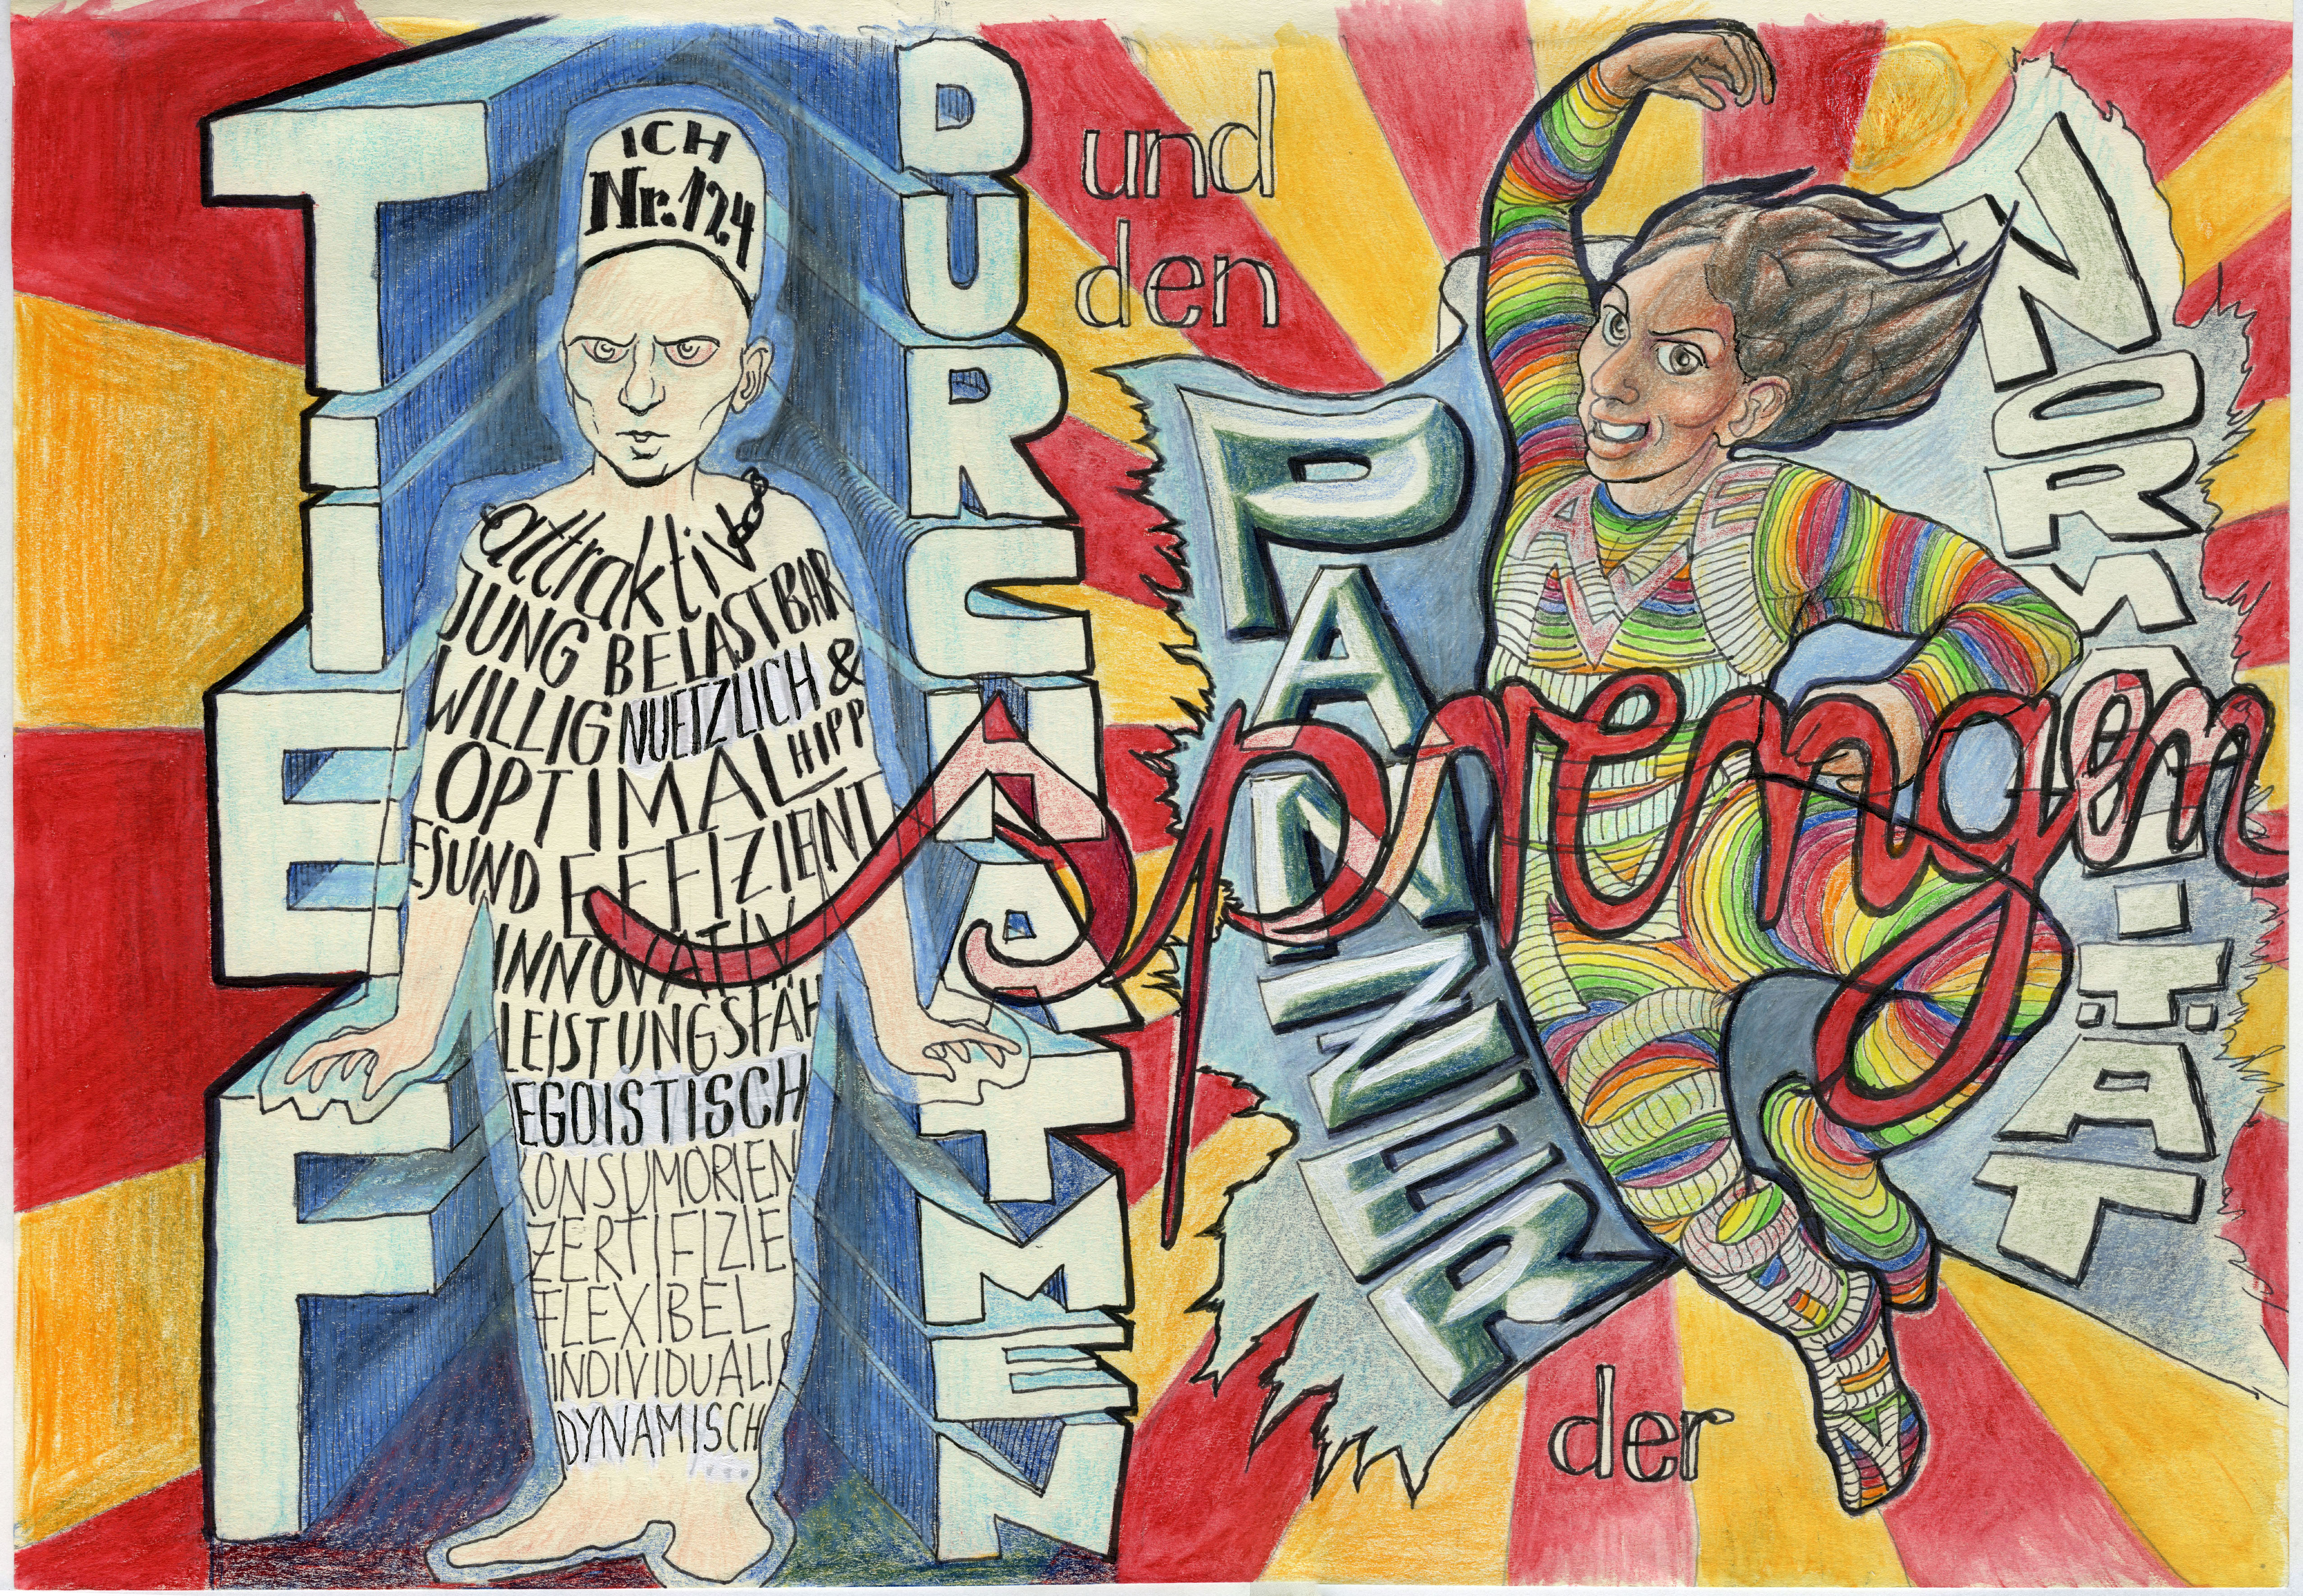 TiEF
DURCHATMEN
ICH
Nr. 124
attraktiv
JUNG BELASTBAR
WILLIG NUETZLICH &
OPTIMAL HIPP
ESUND EFFIZIENT
INNOVATIV
LEISTUNGSFÄH
EGOISTISCH
KONSUMORIEN
ZERTIFIZIE
FLEXIBEL
INDIVIDUALIS
DYNAMISCH
und
den
PANNER
der
NORMALITÄT
sprengen